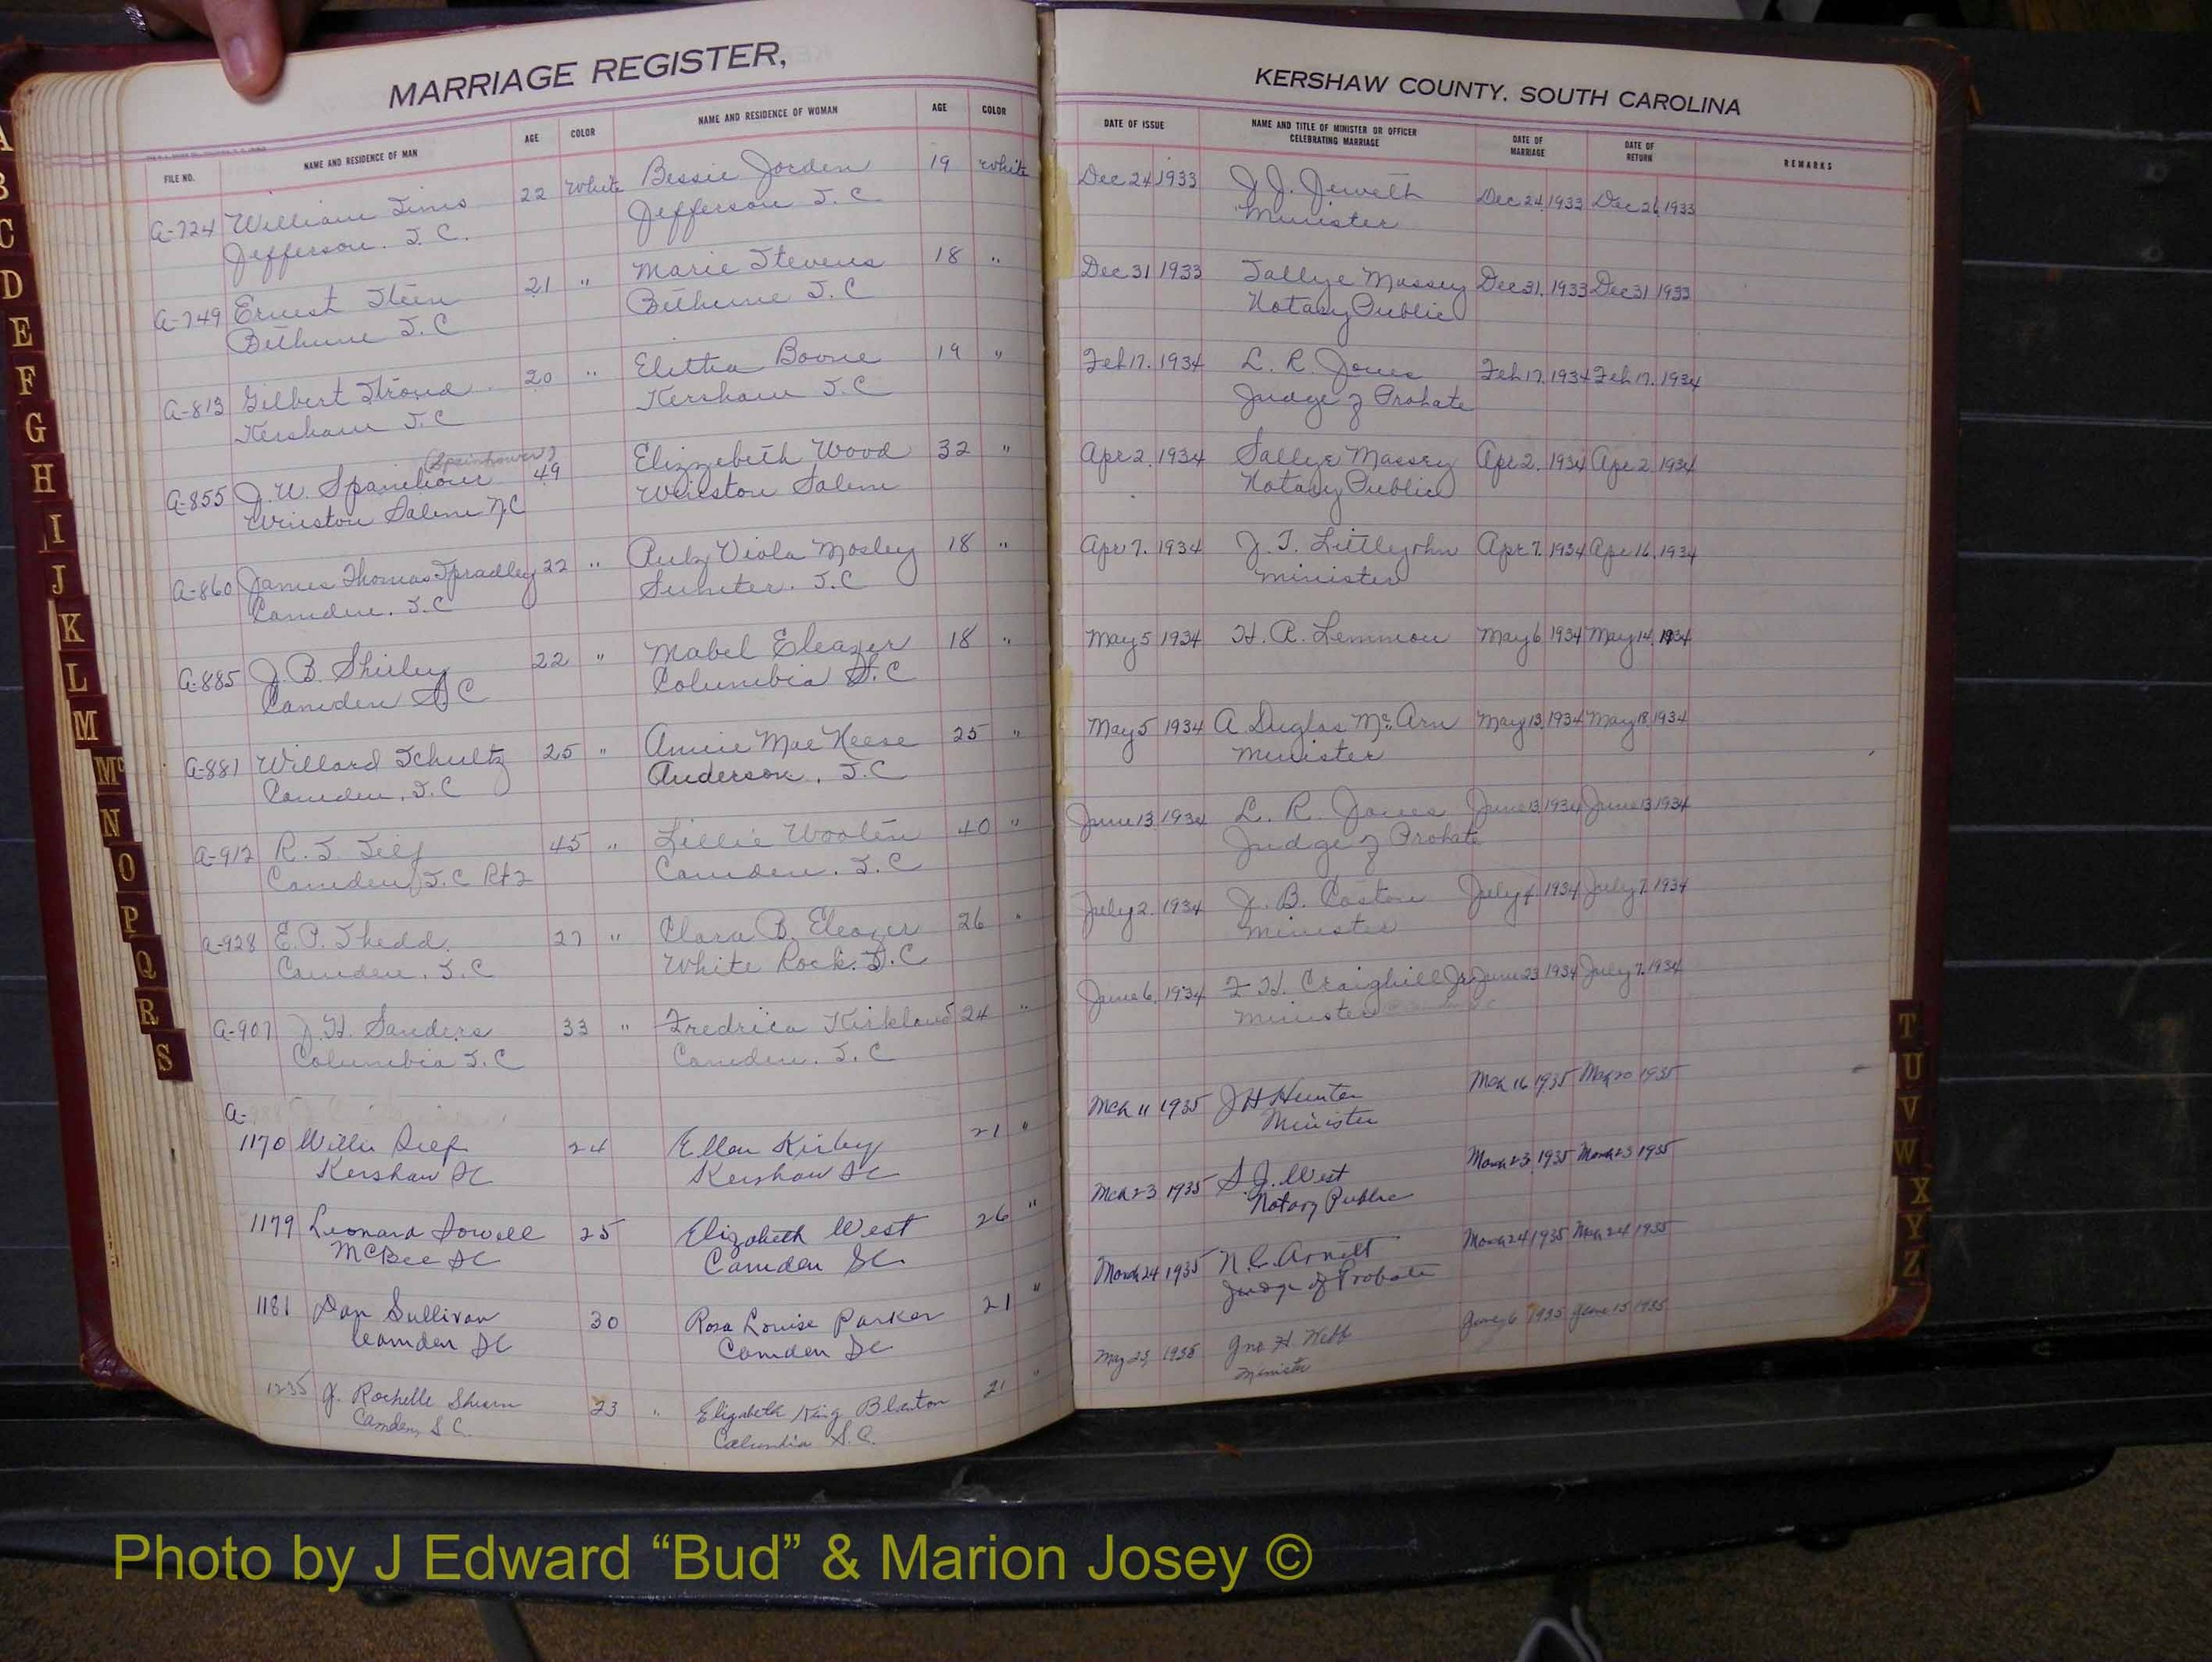 MARRIAGE REGISTER,
FILE NO. NAME AND RESIDENCE OF MAN AGE COLOR NAME AND RESIDENCE OF WOMAN AGE COLOR
A-724 William Sims 22 White Bessie Jorden 19 White
Jefferson. S.C. Jefferson S.C.
A-749 Ernest Steen 21 " Marie Stevens 18 "
Bethune S.C Bethune S.C
A-813 Gilbert Stroud 20 " Elittia Boone 19 "
Kershaw S.C Kershaw S.C
(Spainhower?)
A-855 J.W. Spanihour 49 Elizzebeth Wood 32 "
Winston Salem N.C Winston Salem
A-860 James Thomas Spradley 22 " Ruby Viola Mosley 18 "
Camden. S.C Sumter. S.C
A-885 J.B. Shirley 22 " Mabel Eleazer 18 "
Camden S.C Columbia S.C
A-881 Willard Schultz 25 " Annie Mae Keese 25 "
Camden, S.C Anderson, S.C
A-912 R.S. Self 45 " Lillie Wooten 40 "
Camden S.C Rt 2 Camden. S.C
A-928 E.P. Shedd. 27 " Clara B. Eleazer 26 "
Camden. S.C White Rock. S.C
A-907 J.H. Sanders 33 " Fredrica Kirkland 24 "
Columbia S.C Camden. S.C
A-
1170 Willie Self 24 Ellen Kirby 21 "
Kershaw SC Kershaw SC
1179 Leonard Sowell 25 Elizabeth West 26 "
McBee SC Camden SC
1181 Dan Sullivan 30 Rosa Louise Parker 21 "
Camden SC Camden SC
1235 J. Rochelle Sheorn 23 " Elizabeth King Blanton 21 "
Camden, S.C. Columbia S.C.
KERSHAW COUNTY. SOUTH CAROLINA
DATE OF ISSUE NAME AND TITLE OF MINISTER OR OFFICER CELEBRATING MARRIAGE DATE OF MARRIAGE DATE OF RETURN REMARKS
Dec 24 1933 J.J. Dec 24, 1933 Dec 26 1933
Minister
Dec 31 1933 Sallye Massey Dec 31, 1933 Dec 31 1933
Notary Public
Feb 17. 1934 L. R. Jones Feb 17, 1934 Feb 17. 1934
Judge of Probate
Apr 2. 1934 Sallye Massey Apr 2. 1934 Apr 2 1934
Notary Public
Apr 7. 1934 J. T. Littlejohn Apr 7. 1934 Apr 16, 1934
Minister
May 5 1934 H. A. Lemmon May 6. 1934 May 14. 1934
May 5 1934 A Duglas Mc.Arn May 13, 1934 May 18, 1934
Minister
June 13. 1934 L. R. Jones June 13, 1934 June 13 1934
Judge of Probate
July 2. 1934 J. B. Caston July 4. 1934 July 7. 1934
Minister
June 6. 1934 F H. Craighill Jr. June 23 1934 July 7. 1934
Minister
Mch 11 1935 J H Hunter Mch 16 1935 Mch 20 1935
Minister
Mch 23 1935 S.J. West March 23, 1935 March 23 1935
Notary Public
March 24 1935 N.C. Arnett March 24 1935 Mch 24 1935
Judge of Probate
May 25, 1935 Jno H. Webb June 6 1935 June 15 1935
Minister
A
B
C
D
E
F
G
H
I
J
K
L
M
Mc
N
O
P
Q
R
S
T
U
V
W
X
Y
Z
Photo by J Edward “Bud” & Marion Josey ©